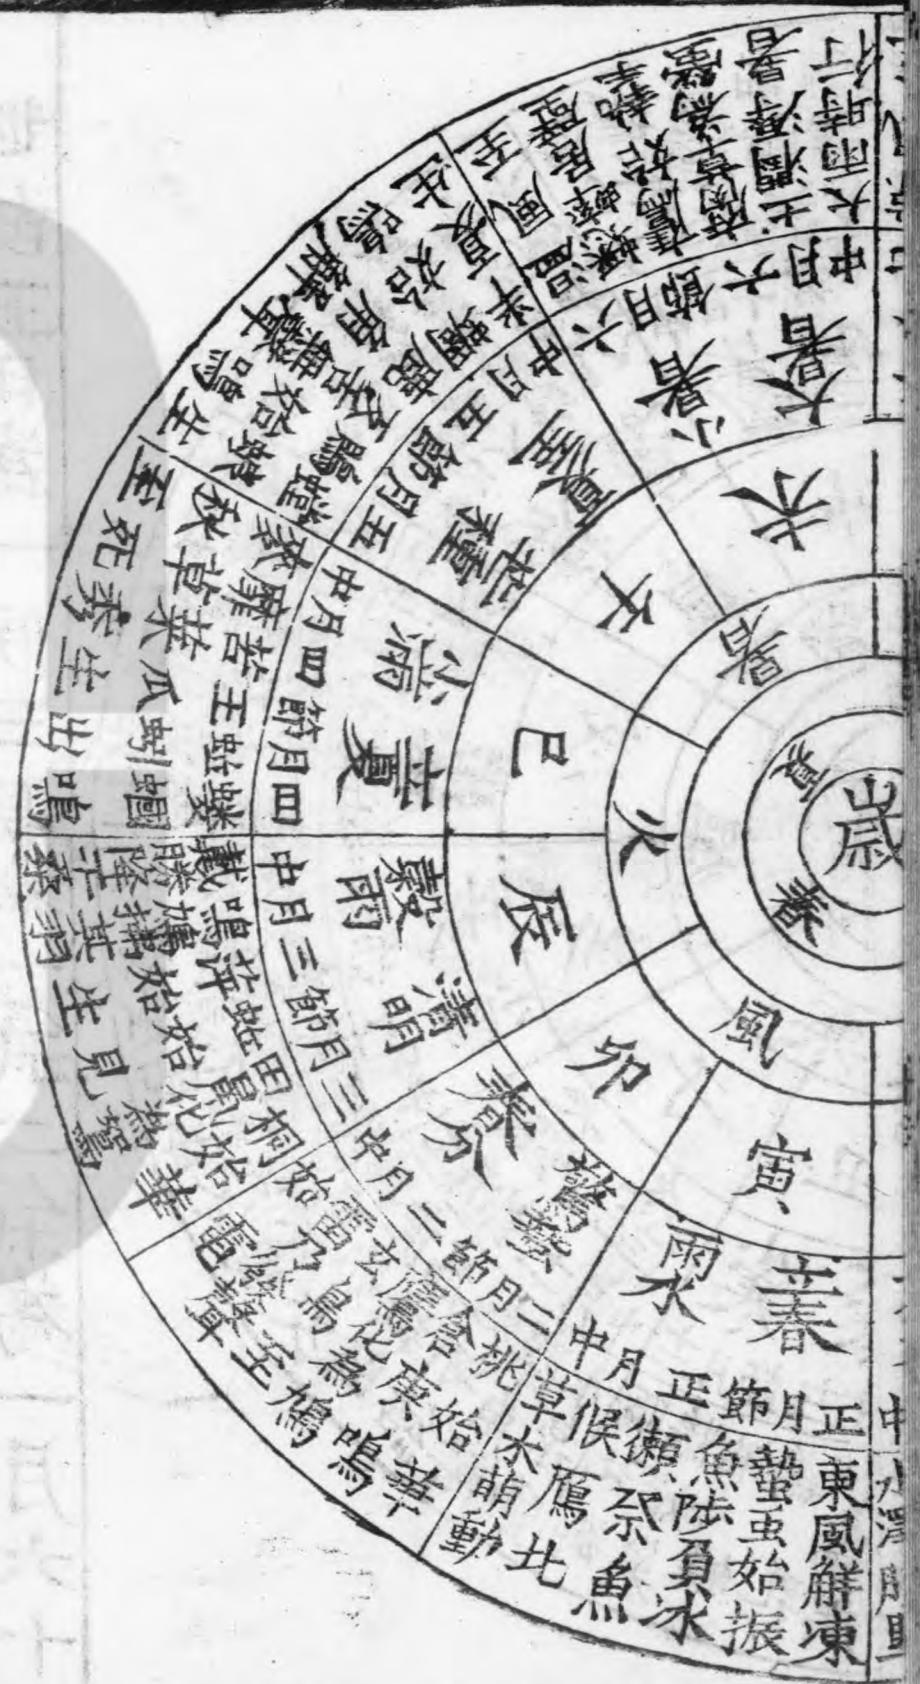 歲
春
夏
風
火
暑
寅
卯
辰
巳
午
未
立春
雨水
驚蟄
春分
清明
穀雨
立夏
小滿
芒種
夏至
小暑
大暑
正月節
正月中
二月節
二月中
三月節
三月中
四月節
四月中
五月節
五月中
六月節
六月中
東風解凍
蟄虫始振
魚陟負冰
獺祭魚
候鴈北
草木萌動
桃始華
倉庚鳴
鷹化為鳩
玄鳥至
雷乃發聲
始電
桐始華
田鼠化為鴽
虹始見
萍始生
鳴鳩拂其羽
戴勝降于桑
螻蟈鳴
蚯蚓出
王瓜生
苦菜秀
靡草死
麥秋至
螳螂生
鵙始鳴
反舌無聲
鹿角解
蜩始鳴
半夏生
溫風至
蟋蟀居壁
鷹始摯
腐草為螢
土潤溽暑
大雨時行
中
水澤